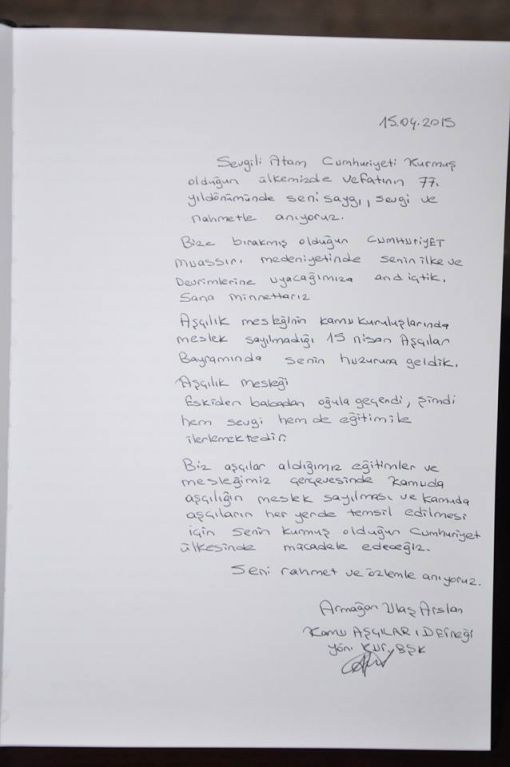 15.04.2015
Sevgili Atam Cumhuriyeti Kurmuş
olduğun ülkemizde vefatının 77.
yıldönümünde seni saygı, sevgi ve
rahmetle anıyoruz.
Bize bırakmış olduğun CUMHURİYET
muassırı medeniyetinde senin ilke ve
Devrimlerine uyacağımıza and içtik.
Sana minnettarız
Aşçılık mesleğinin kamu kuruluşlarında
meslek sayılmadığı 15 nisan Aşçılar
Bayramında senin huzuruna geldik.
Aşçılık mesleği
Eskiden babadan oğula geçendi, şimdi
hem sevgi hem de eğitim ile
ilerlemektedir.
Biz aşçılar aldığımız eğitimler ve
mesleğimiz çerçevesinde kamuda
aşçılığın meslek sayılması ve kamuda
aşçıların her yerde temsil edilmesi
için senin kurmuş olduğun Cumhuriyet
ülkesinde mücadele edeceğiz.
Seni rahmet ve özlemle anıyoruz.
Armağan Ulaş Arslan
Kamu AŞÇILARI Derneği
Yön. KUR. BŞK